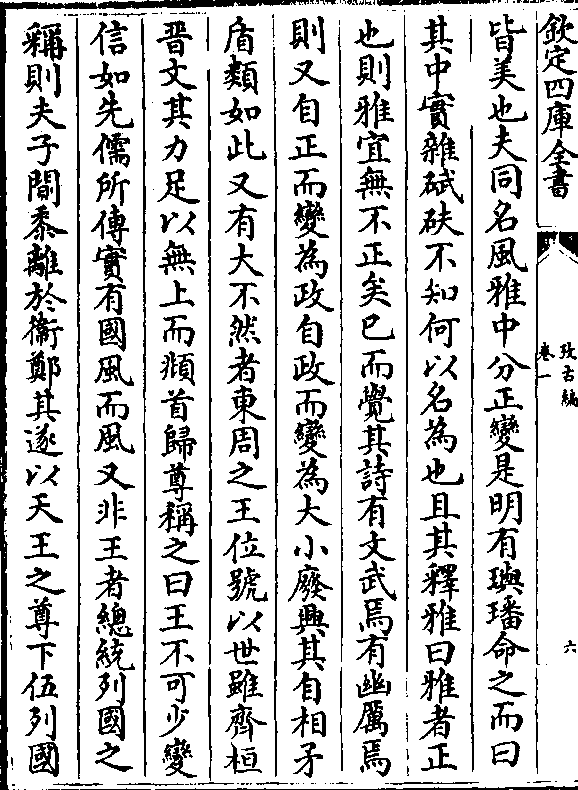 欽定四庫全書
攷古編
卷一
六
皆美也夫同名風雅中分正變是明有璵璠命之而曰
其中實雜碔砆不知何以名為也且其釋雅曰雅者正
也則雅宜無不正矣已而覺其詩有文武焉有幽厲焉
則又自正而變為政自政而變為大小廢興其自相矛
盾類如此又有大不然者東周之王位號以世雖齊桓
晉文其力足以無上而頫首歸尊稱之曰王不可少變
信如先儒所傳實有國風而風又非王者總統列國之
稱則夫子間黍離於衞鄭其遂以天王之尊下伍列國